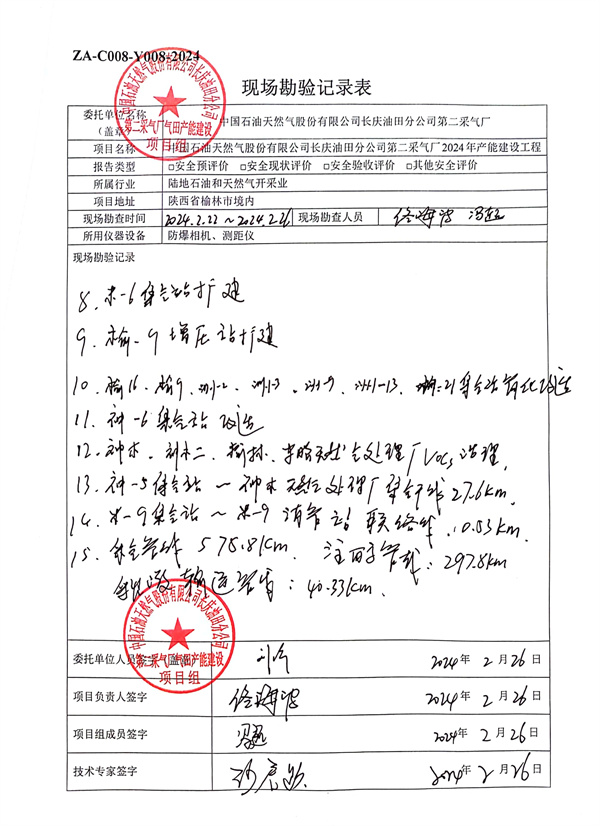 ZA-C008-Y008-2024
现场勘验记录表
委托单位名称
（盖章）
中国石油天然气股份有限公司长庆油田分公司第二采气厂
项目名称 中国石油天然气股份有限公司长庆油田分公司第二采气厂2024年产能建设工程
报告类型 □安全预评价 □安全现状评价 □安全验收评价 □其他安全评价
所属行业 陆地石油和天然气开采业
项目地址 陕西省榆林市境内
现场勘查时间 2024.2.22～2024.2.26 现场勘查人员
所用仪器设备 防爆相机、测距仪
现场勘验记录
8. 米-6集气站扩建
9. 榆-9增压站扩建
10. 榆16、榆9、集气站
11. 神-6集气站改造
12. 神木、处理厂VOCs治理
13. 神-5集气站～神木天然气处理厂集气干线27.6km.
14. 米-9集气站～米-9清管站联络线10.53km.
15. 采气管线575.8km. 注醇管线:297.8km
输送管线:40.33km.
委托单位人员签字（盖章） 2024年2月26日
项目负责人签字 2024年2月26日
项目组成员签字 2024年2月26日
技术专家签字 2024年2月26日
中国石油天然气股份有限公司长庆油田分公司
第二采气厂气田产能建设
项目组
中国石油天然气股份有限公司长庆油田分公司
第二采气厂气田产能建设
项目组